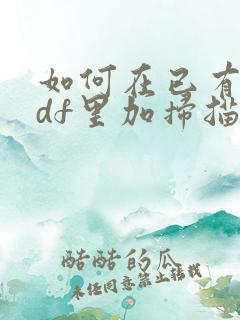 如何在已有
df里加扫描
酷酷的瓜
未经同意禁止转载